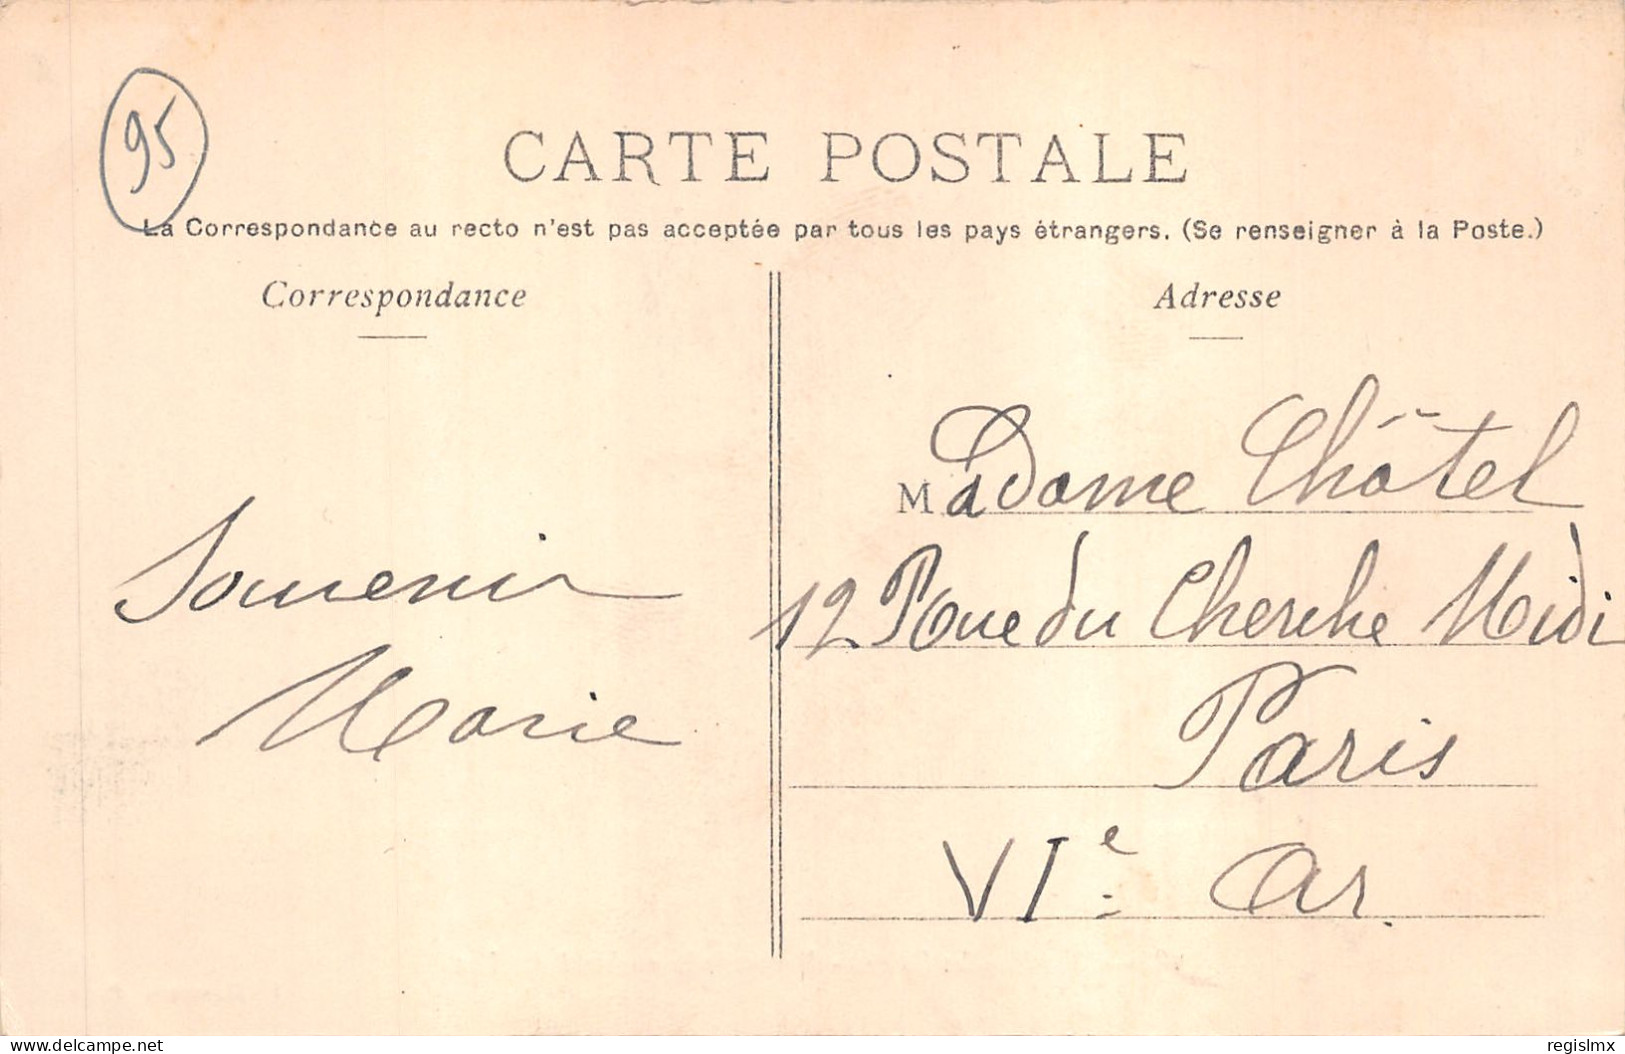 95
CARTE POSTALE
La Correspondance au recto n'est pas acceptée par tous les pays étrangers. (Se renseigner à la Poste.)
Correspondance
Souvenir
Marie
Adresse
Madame Châtel
12 Rue du Cherche Midi
Paris
VIe Ar.
www.delcampe.net
regislmx